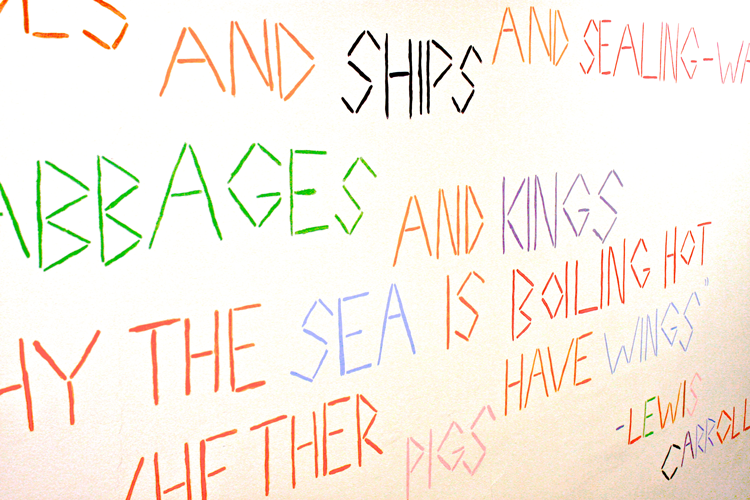 ES AND SHIPS AND SEALING-WA
ABBAGES AND KINGS
HY THE SEA IS BOILING HOT
HETHER PIGS HAVE WINGS"
-LEWIS
CARROLL